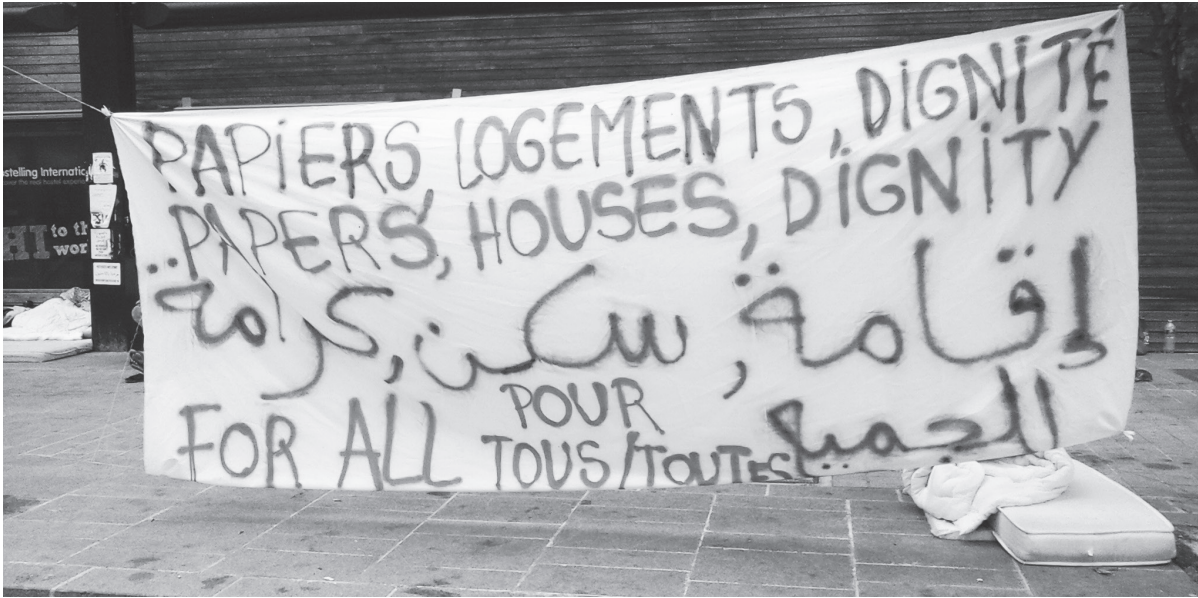 PAPIERS, LOGEMENTS, DIGNITÉ
PAPERS, HOUSES, DIGNITY
إقامة, سكن, كرامة
FOR ALL
POUR
TOUS/TOUTES
للجميع
stelling Internatio
HI to th
wor